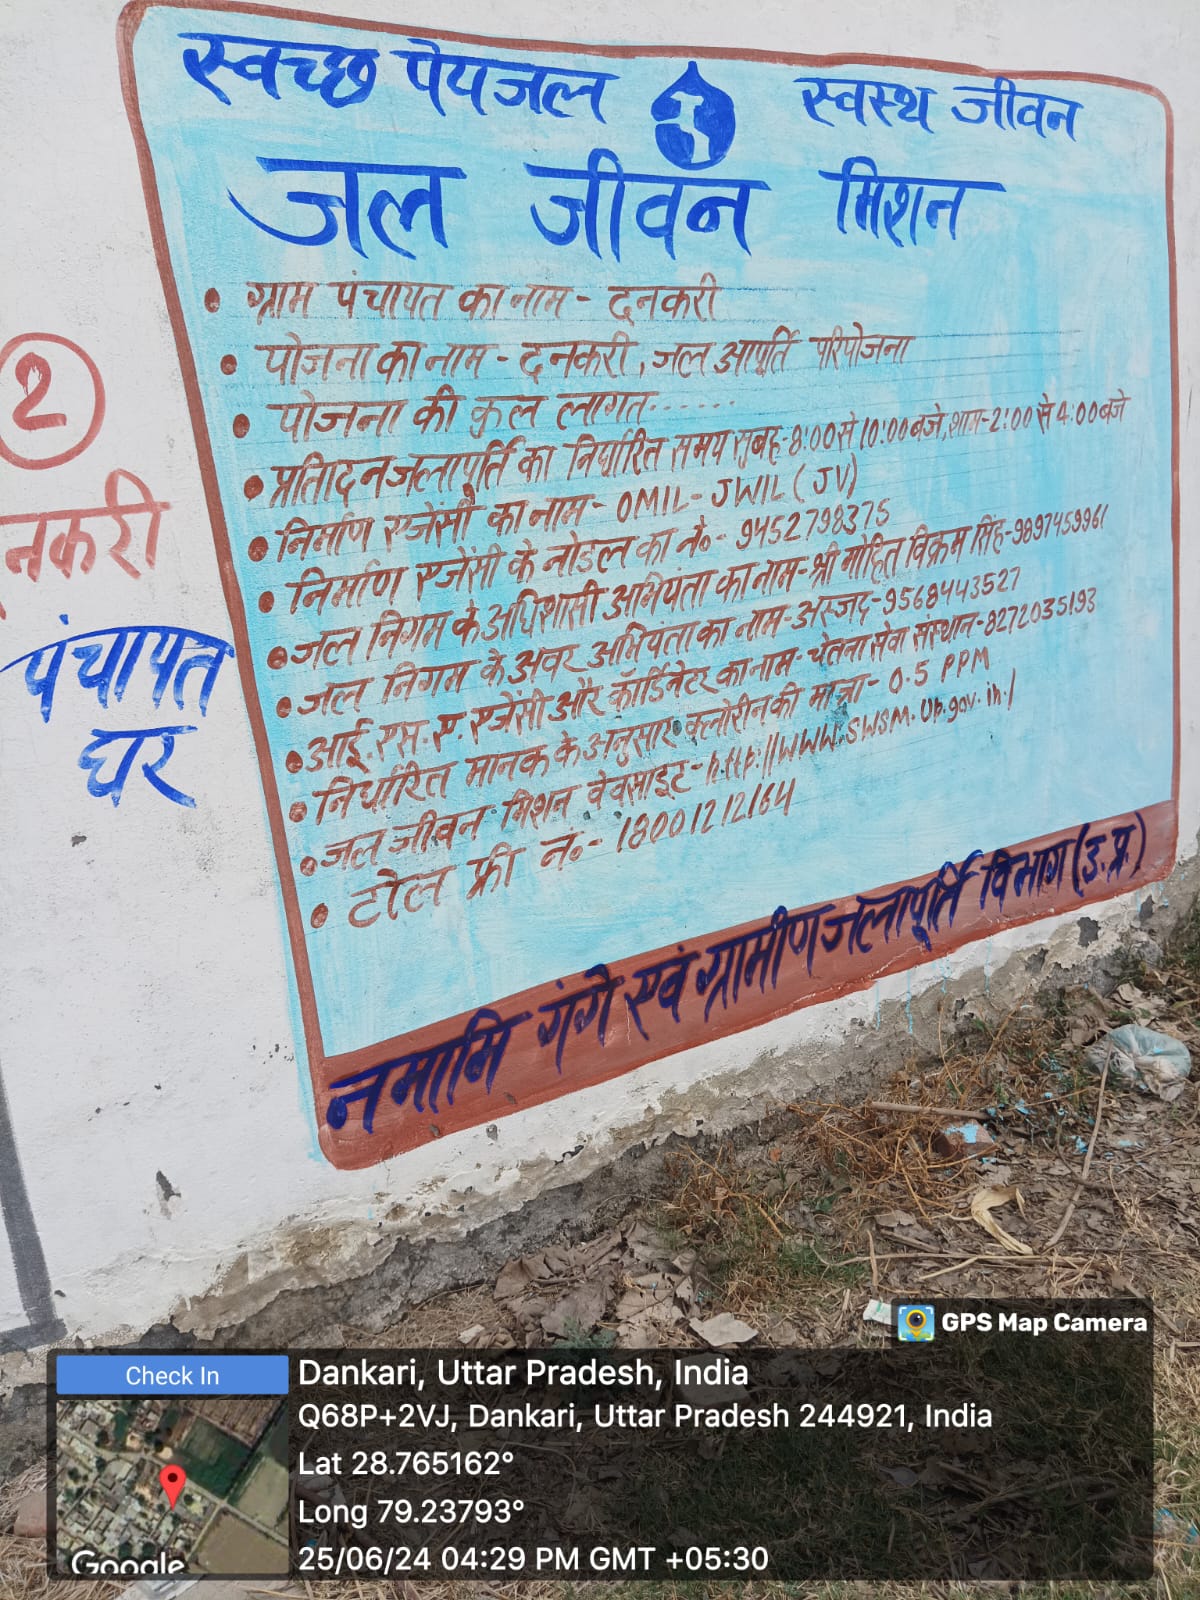 स्वच्छ पेयजल स्वस्थ जीवन
जल जीवन मिशन
• ग्राम पंचायत का नाम - दनकरी
• योजना का नाम - दनकरी, जल आपूर्ति परियोजना
• योजना की कुल लागत......
• प्रतिदिन जलापूर्ति का निर्धारित समय सुबह-8:00 से 10:00 बजे, शाम-2:00 से 4:00 बजे
• निर्माण एजेंसी का नाम - OMIL - JWIL (JV)
• निर्माण एजेंसी के नोडल का नं०- 9452798375
• जल निगम के अधिशासी अभियंता का नाम-श्री मोहित विक्रम सिंह-9897459961
• जल निगम के अवर अभियंता का नाम-अस्जद-9568443527
• आई.एस.ए. एजेंसी और कॉर्डिनेटर का नाम-चेतना सेवा संस्थान-8272035193
• निर्धारित मानक के अनुसार क्लोरीन की मात्रा- 0.5 PPM
• जल जीवन मिशन वेवसाइट-http://WWW.SWSM.Up.gov.in/
• टोल फ्री नं०- 18001212164
नमामि गंगे एवं ग्रामीण जलापूर्ति विभाग (उ.प्र.)
2
नकरी
पंचायत
घर
GPS Map Camera
Check In
Dankari, Uttar Pradesh, India
Q68P+2VJ, Dankari, Uttar Pradesh 244921, India
Lat 28.765162°
Long 79.23793°
25/06/24 04:29 PM GMT +05:30
Google